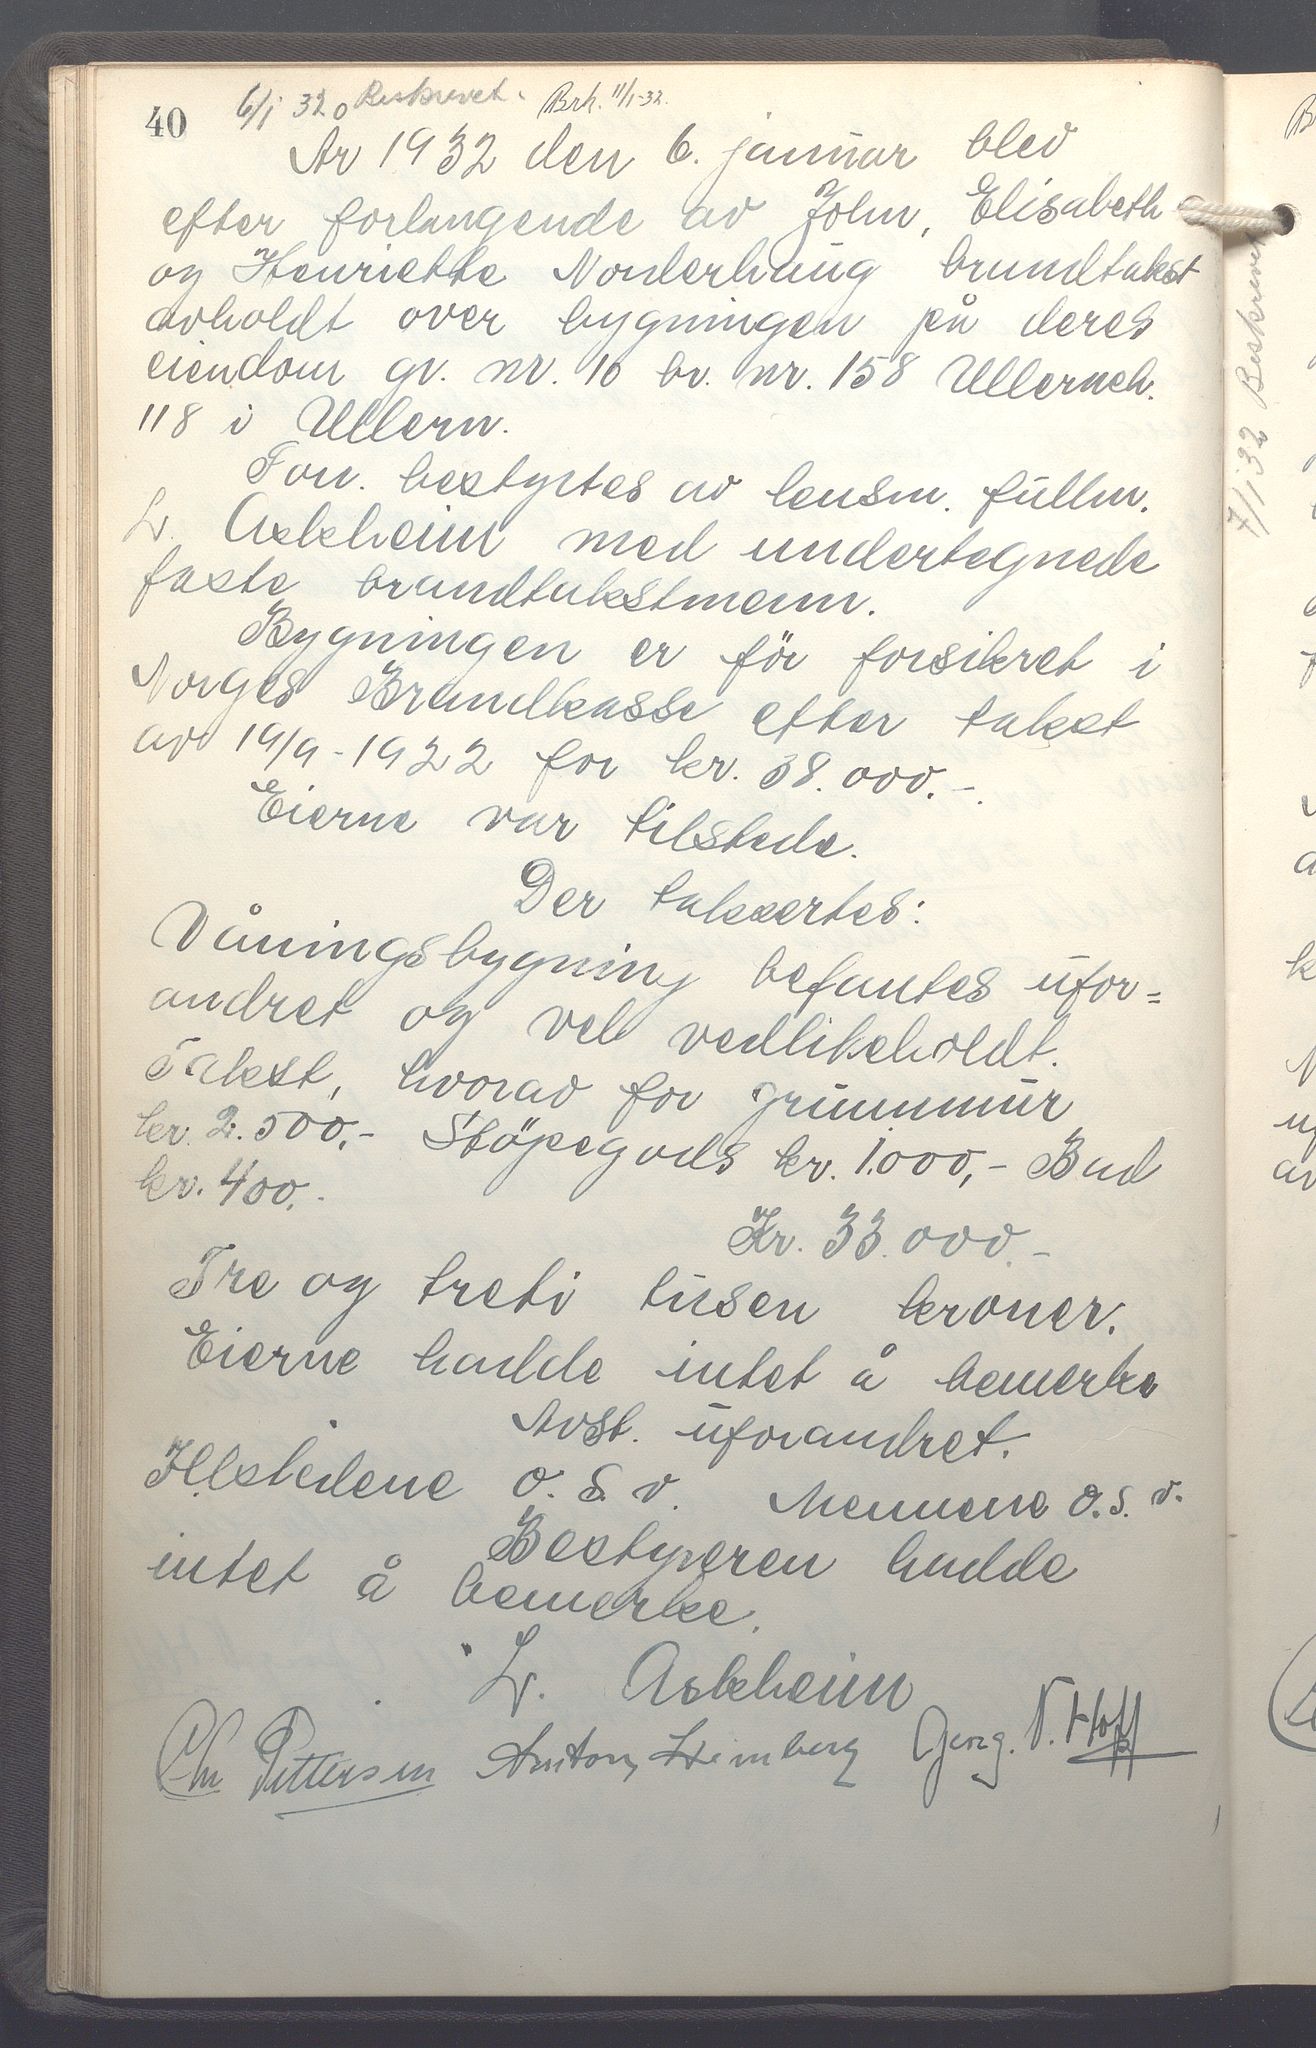 40 6/1 32 Beskrevet. Brk. 11/1-32.
År 1932 den 6. januar blev
efter forlangende av John, Elisabeth
og Henriette Nordertaug brandtakst
avholdt over bygningen på deres
eiendom gr. nr. 10 br. nr. 158 Ullernch.
118 i Ullern.
Forr. bestyrtes av lensm. fullm.
L. Askheim med undertegnede
faste brandtakstmenn.
Bygningen er før forsikret i
Norges Brandkasse efter takst
av 19/9-1922 for kr. 38.000.-.
Eierne var tilstede.
Der takxertes:
Våningsbygning befantes ufor=
andret og vel vedlikeholdt.
Takst, hvorav for grunnmur
kr. 2.500,- Støpegods kr. 1.000,- Bad
kr. 400.-
Kr. 33.000.-
Tre og treti tusen kroner.
Eierne hadde intet å bemerke
Avst. uforandret.
Ildstedene o.s.v. Mennene o.s.v.
Bestyreren hadde
intet å bemerke.
L. Askheim
Chr Pettersen Anton Georg. N. Hoff
7/1 32 Beskrevet